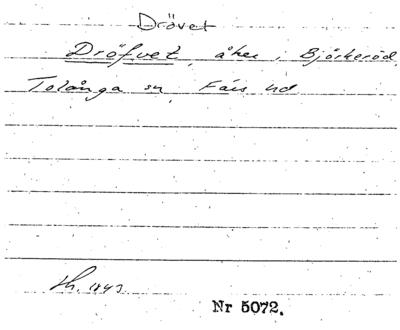 Drövet
Dröfvet, åker, Björkeröd,
Tolånga sn, Färs hd
Nr 5072.